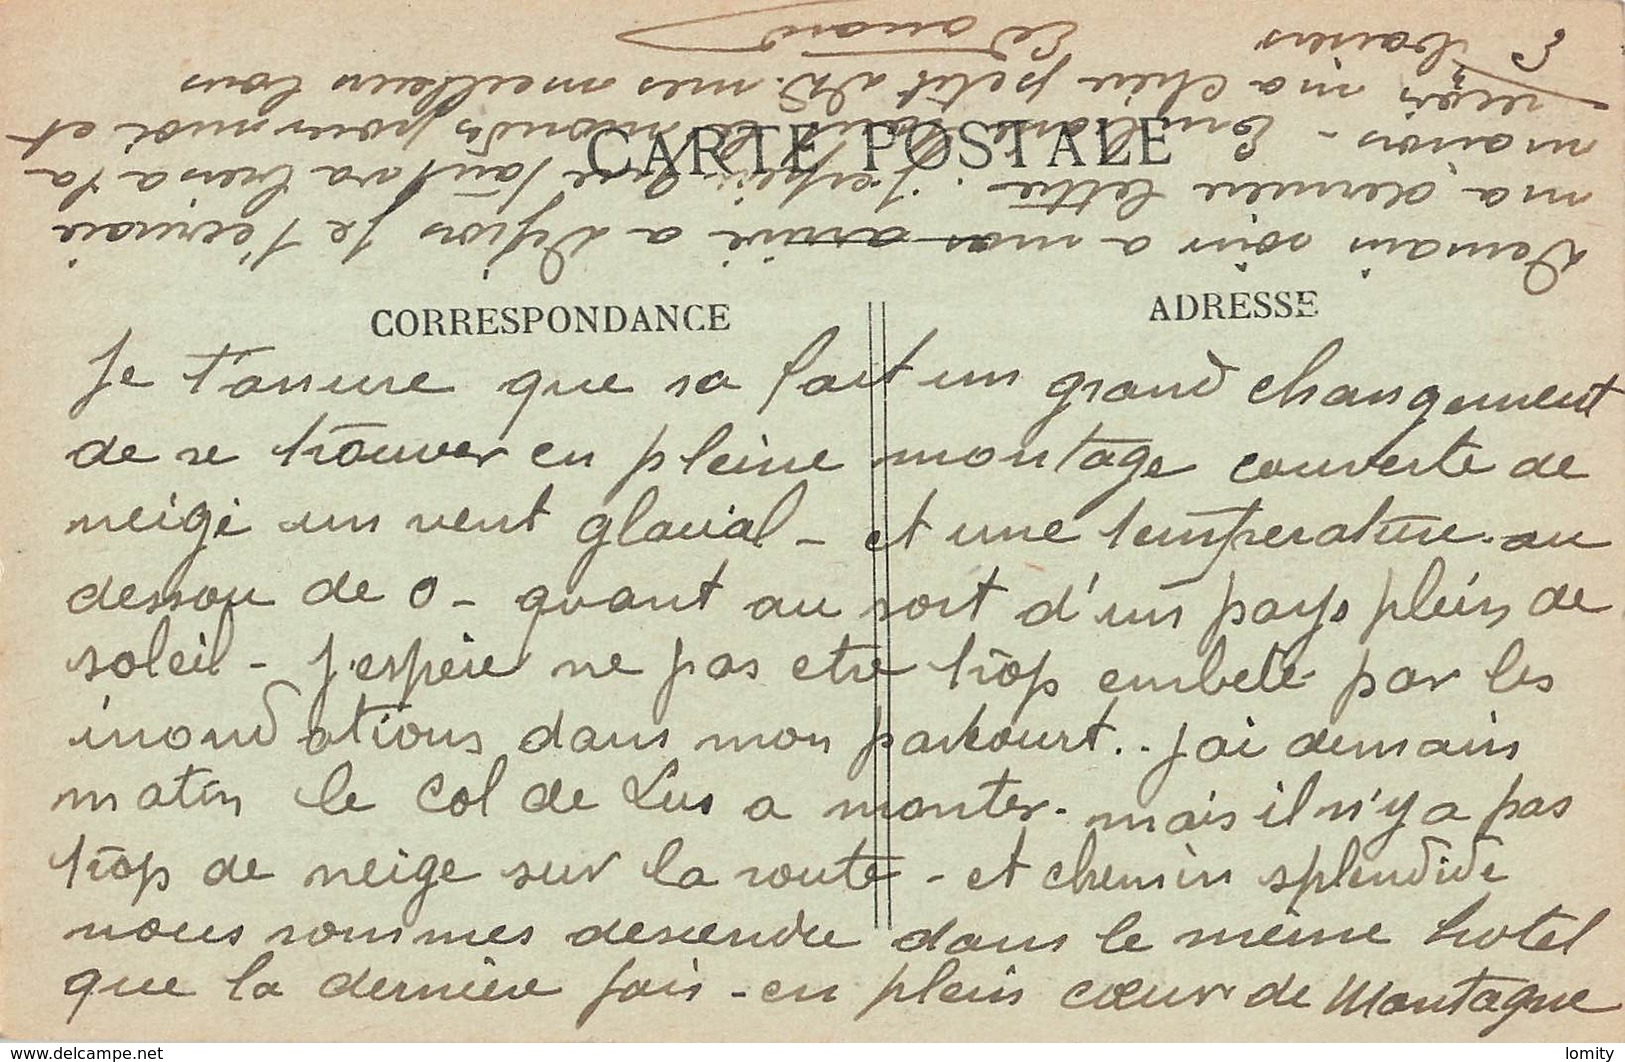 CARTE POSTALE
CORRESPONDANCE
ADRESSE
Je t'assure que sa fait un grand changement
de se trouver en pleine montage couverte de
neige un vent glacial - et une temperature au
dessou de 0 - quant au sort d'un pays plein de
soleil - j'espère ne pas etre trop embeté par les
inondations dans mon parkourt.. j'ai demain
matin le Col de Lus a monter - mais il n'y a pas
trop de neige sur la route - et chemin splendide
nous sommes descendu dans le même hotel
que la dernière fois - en plein cœur de Montagne
Demain soir a mas arrivé a Dijon je t'ecrirais
ma dernière lettre - j'espère que tout va bien a la
maison - le monds pour moi et
reçois ma chère petit mes meilleurs tous
baisers
Edouard
www.delcampe.net
lomity